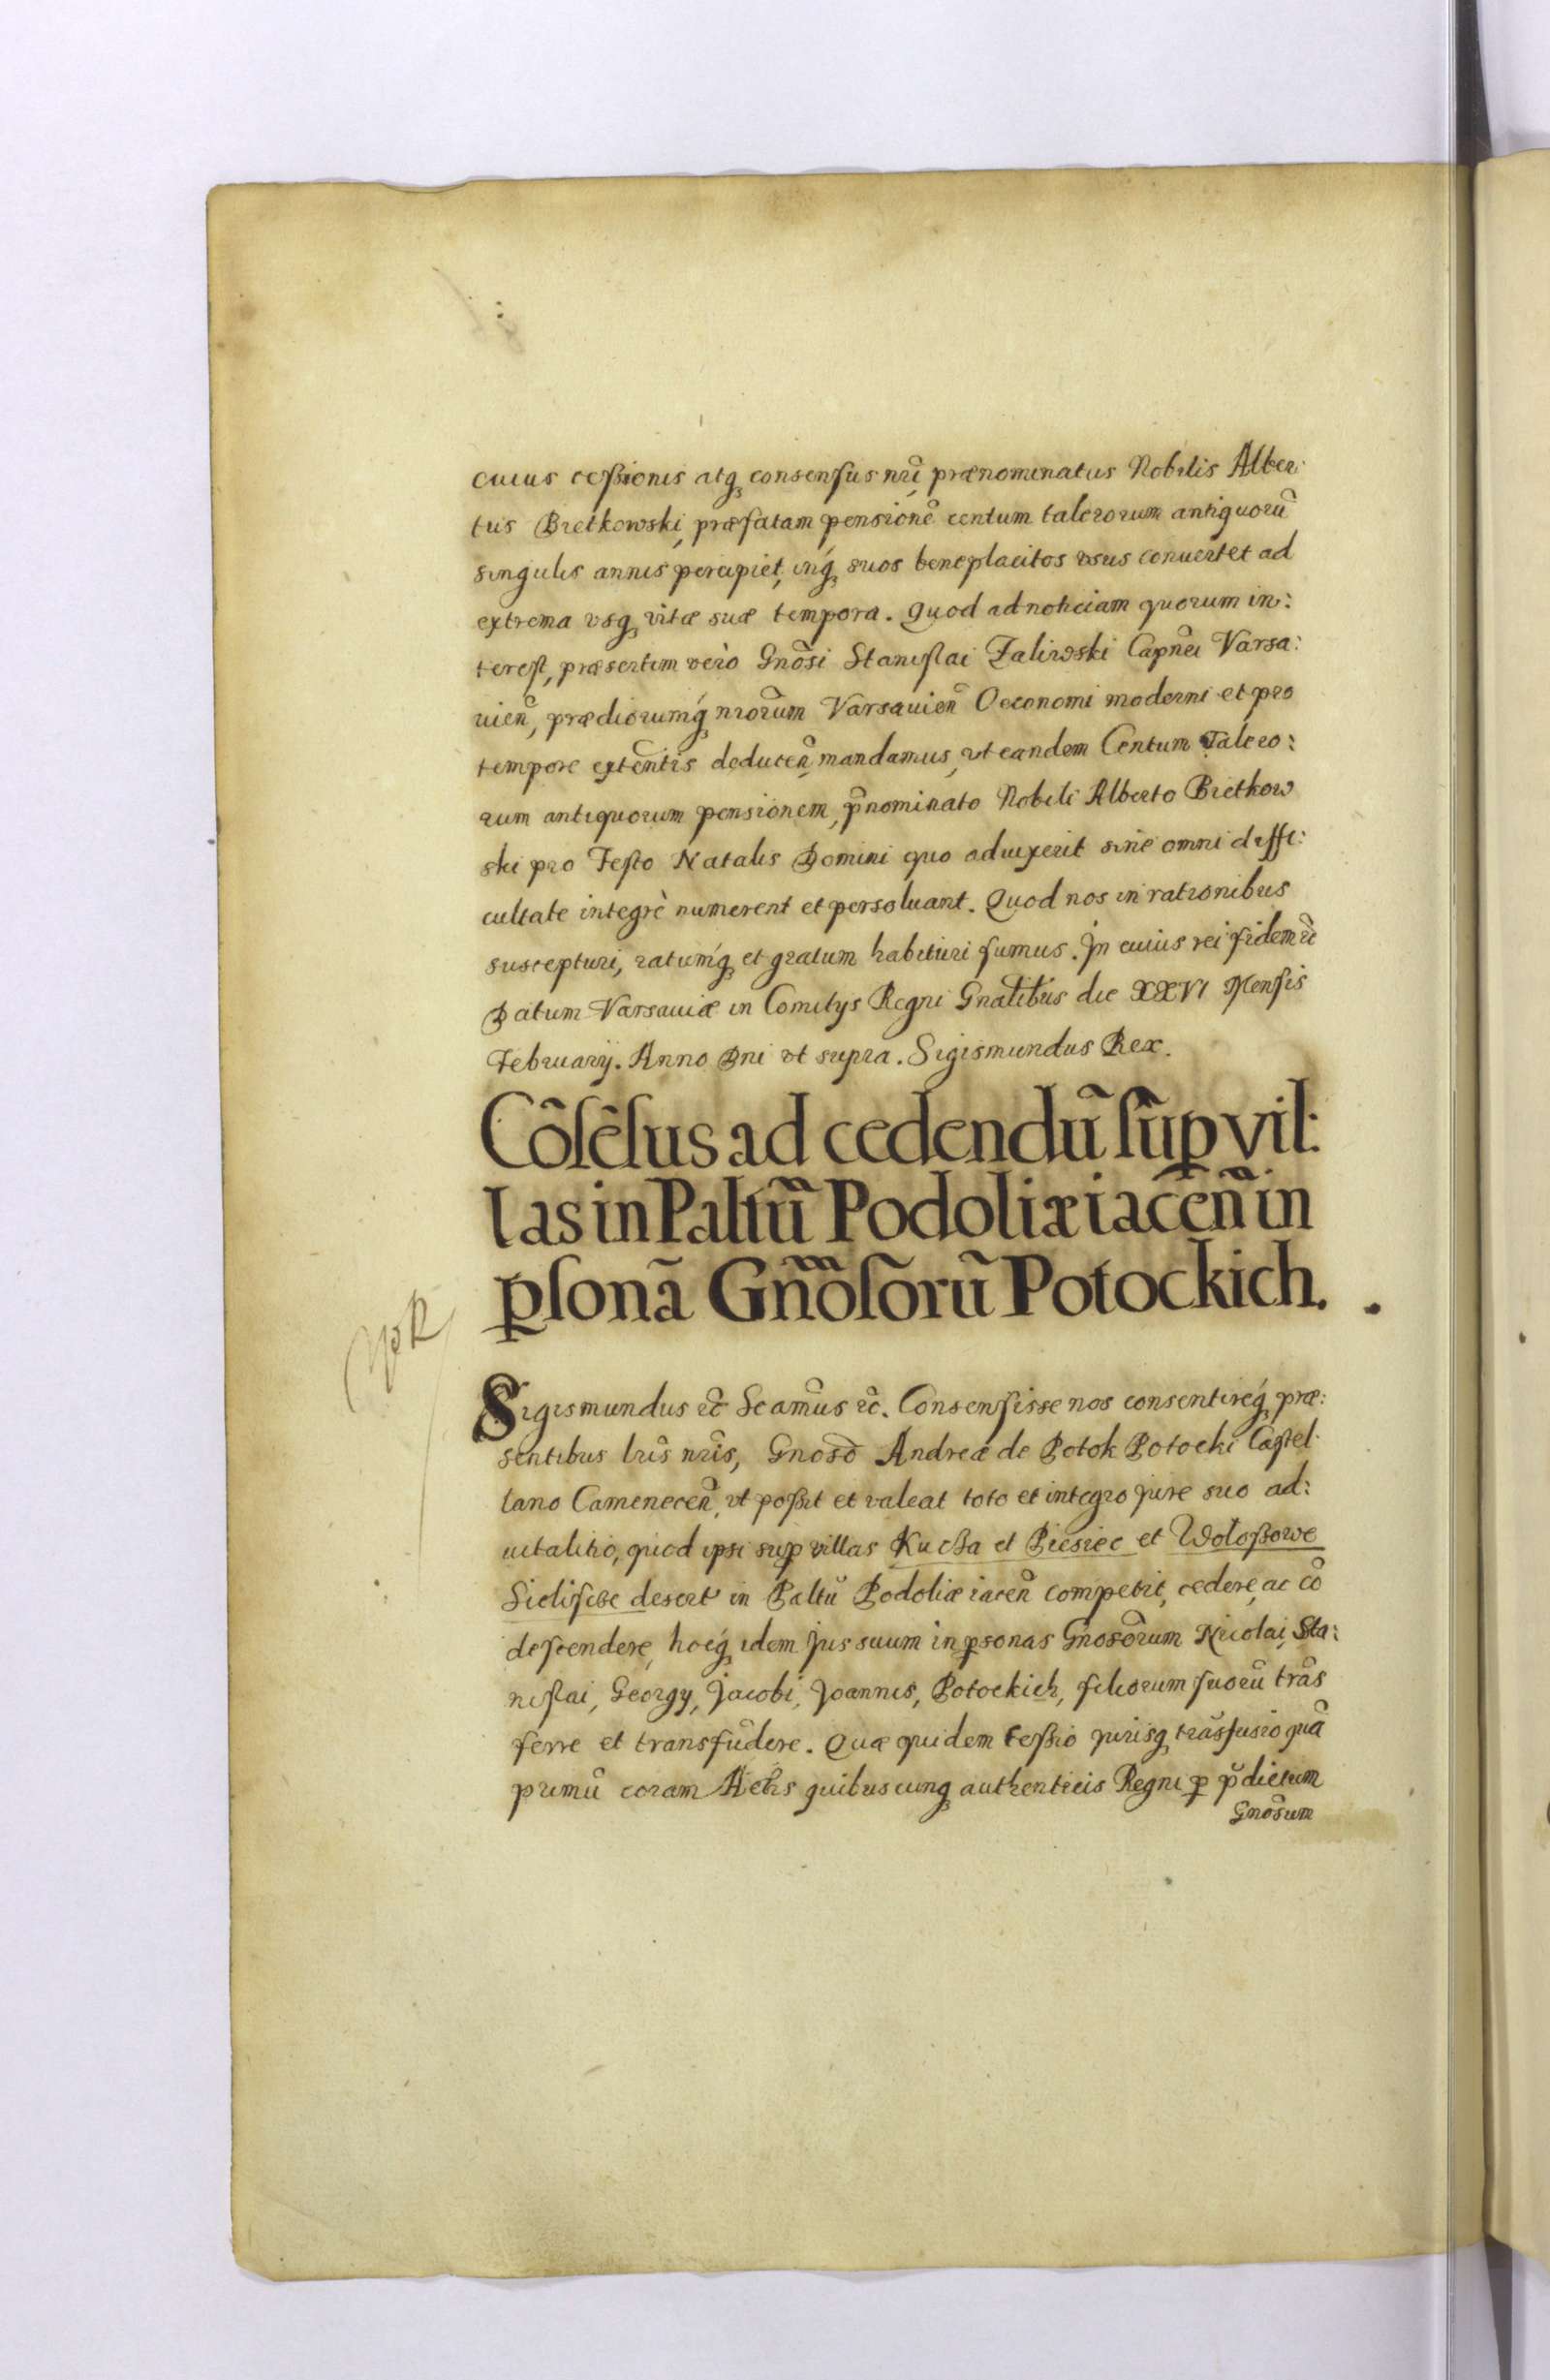 cuius ceßionis atq̨ consensus nr̃i prænominatus Nobilis Alber:
tus Bretkowski, præfatam pensionẽ centum talerorum antiquorũ
singulis annis percipiet, inq̨́ suos beneplacitos vsus conuertet ad
extrema vsq̨ vitæ suæ tempora. Quod ad noticiam quorum in:
terest, præsertim verò Gnõsi Stanislai Zaliwski Capñei Varsa:
uieñ, prædiorumq̨́ nrõrum Varsauieñ Oeconomi moderni et pro
tempore existentis deduceñ, mandamus, vt eandem Centum Talero:
rum antiquorum pensionem, p̃nominato Nobili Alberto Bretkow
ski pro Festo Natalis Domini quo aduixerit sine omni diffi:
cultate integrè numerent et persoluant. Quod nos in rationibus
suscepturi, ratumq̨́ et gratum habituri sumus. In cuius rei fidem ꝛc̃
Datum Varsauiæ in Comitijs Regni Gnalibus die XXVI Mensis
February. Anno Dni vt supra. Sigismundus Rex.
Cõsẽsus ad cedendũ sũꝑ vil:
las in Paltũ Podoliæ iaceñ in
ꝑsonã Gñõsorũ Potockich.
Sigismundus ꝛc̃ Scamũs ꝛc̃. Consensisse nos consentireq̨́ præ:
sentibus lrĩs nrĩs, Gnosõ Andreæ de Potok Potocki Castel:
lano Cameneceñ, vt poßit et valeat toto et integro jure suo ad:
uitalitio, quod ipsi suꝑ villas Kucza et Piesiec et Wołoßowe
Sieliscze desert in Paltũ Podoliæ iaceñ competit, cedere, ac cõ
descendere, hocq̨́ idem jus suum in ꝑsonas Gnosõrum Nicolai, Sta:
nislai, Georgy, Jacobi, Joannis, Potockich, filiorum suorũ trãs
ferre et transfũdere. Quæ quidem ceßio jurisq̨ trãsfusio quã
primũ coram Actis quibuscunq̨ authenticis Regni ꝑ p̃dictum
Gnõsum